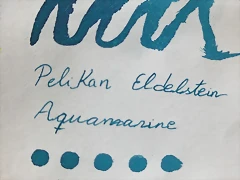 Pelikan Eldelstein
Aquamarine